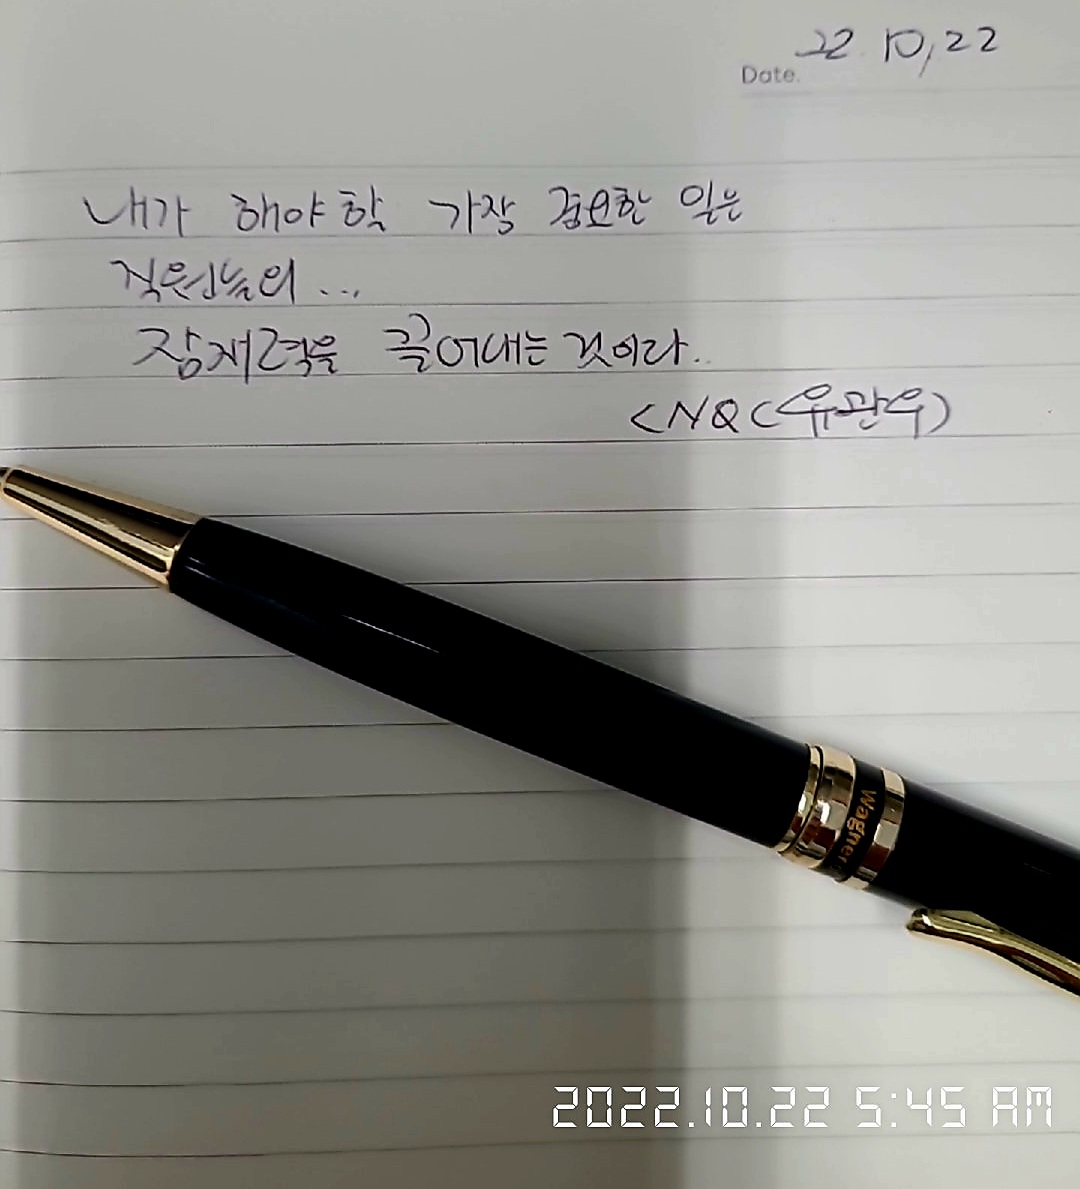 22. 10, 22
Date.
내가 해야할 가장 중요한 일은
직원들의 ...
잠재력을 끌어내는 것이라..
<NQ (유관우)
Wagner
2022.10.22 5:45 AM